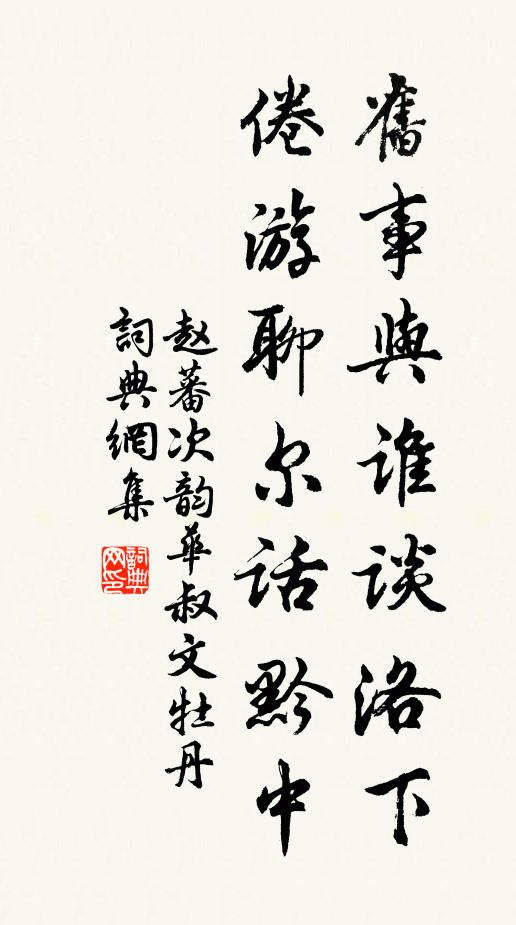 舊事與谁谈洛下
倦游聊尔话黔中
赵蕃次韵華叔文牡丹
詞典網集
詞典网印